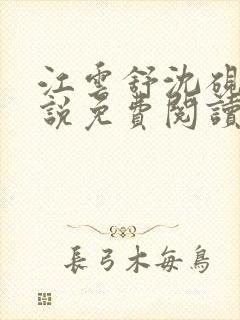 江雲舒沈硯
說免費閱讀
長弓木每鳥